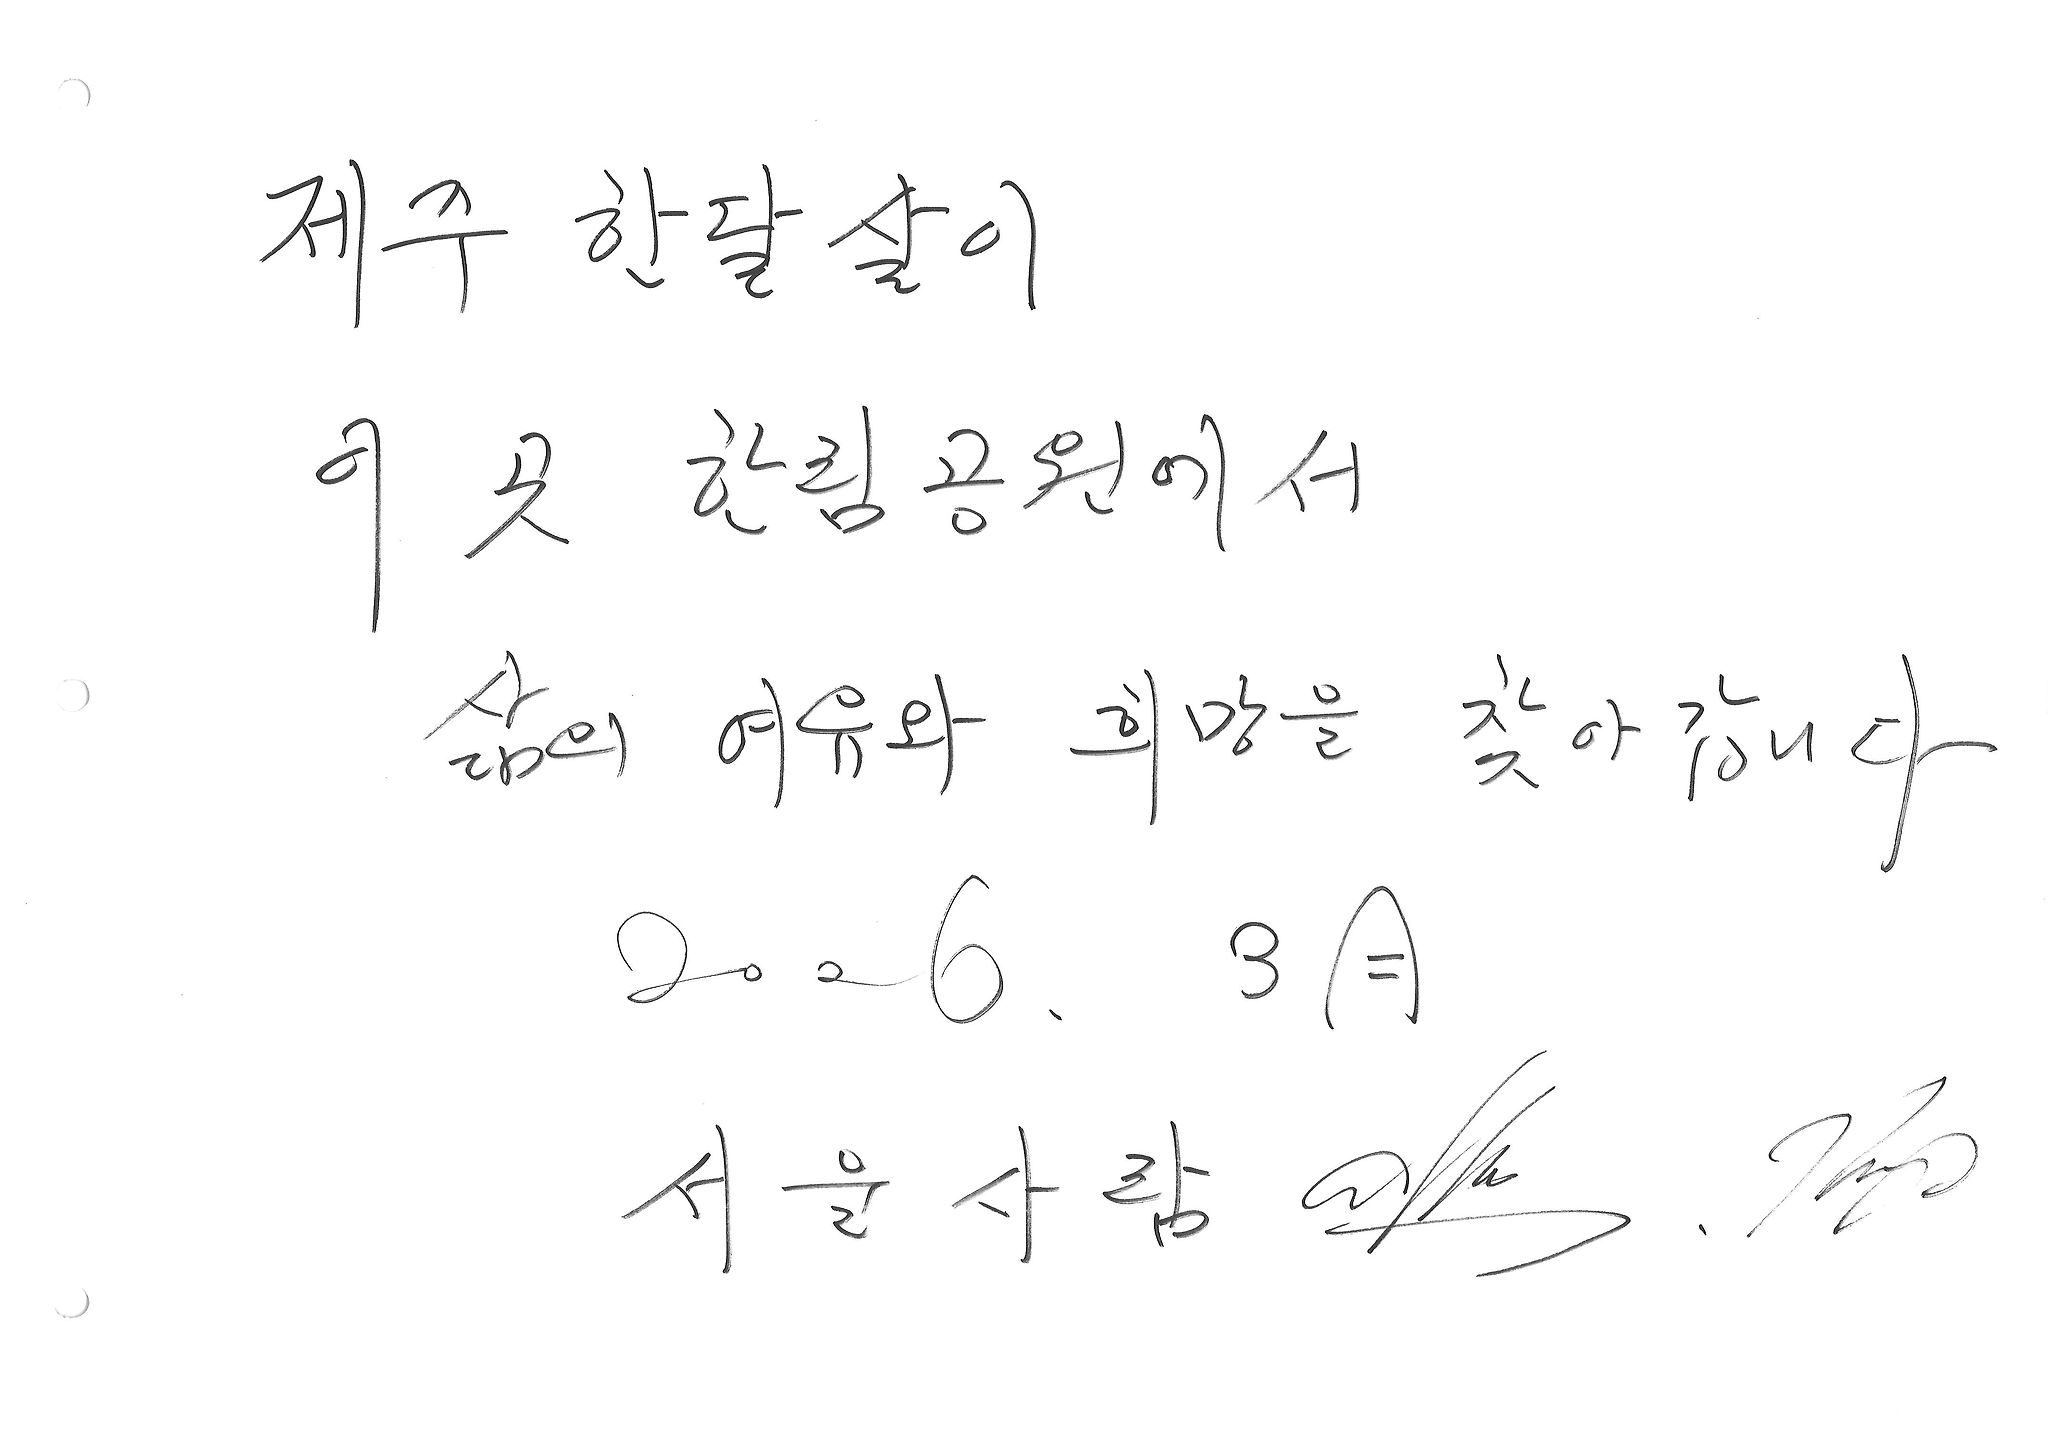 제주 한달살이
이 곳 한림공원에서
삶의 여유와 희망을 찾아갑니다
2026. 3月
서울사람